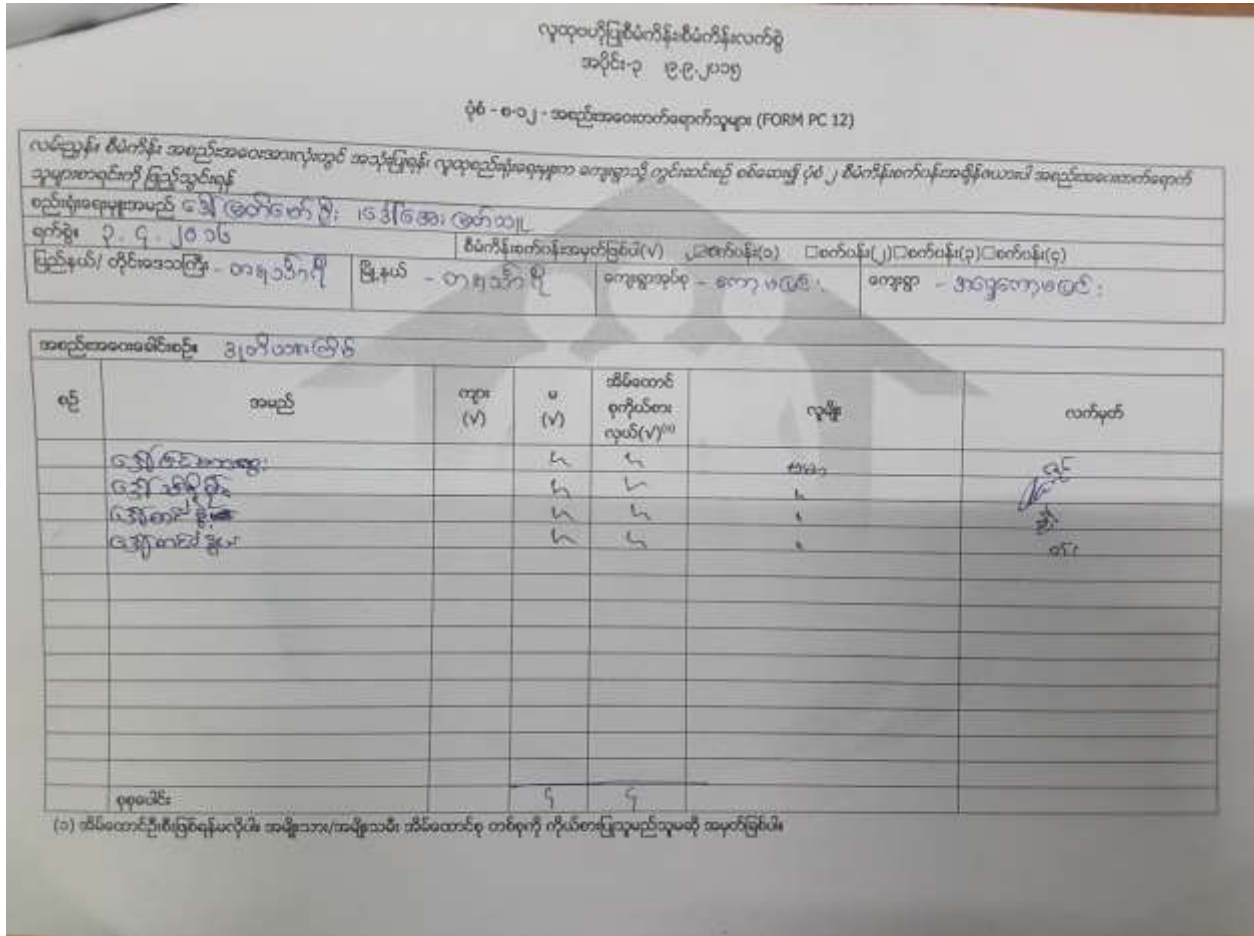 လူထုဗဟိုပြုစီမံကိန်းစီမံကိန်းလက်စွဲ
အပိုင်း-၃ ၂၉.၉.၂၀၁၅
ပုံစံ - စ-၁၂ - အစည်းအဝေးတက်ရောက်သူများ (FORM PC 12)
လမ်းညွှန်။ စီမံကိန်း အစည်းအဝေးအားလုံးတွင် အသုံးပြုရန်၊ လူထုစည်းရုံးရေးမှူးက ကျေးရွာသို့ ကွင်းဆင်းစဉ် စစ်ဆေး၍ ပုံစံ ၂ စီမံကိန်းစက်ဝန်းအချိန်ဇယားပါ အစည်းအဝေးတက်ရောက်
သူများစာရင်းကို ဖြည့်သွင်းရန်
စည်းရုံးရေးမှူးအမည်
ရက်စွဲ။ ၃.၄.၂၀၁၆ စီမံကိန်းစက်ဝန်းအမှတ်ခြစ်ပါ(√) ☑စက်ဝန်း(၁) ☐စက်ဝန်း(၂)☐စက်ဝန်း(၃)☐စက်ဝန်း(၄)
ပြည်နယ်/ တိုင်းဒေသကြီး - တနင်္သာရီ မြို့နယ် - တနင်္သာရီ ကျေးရွာအုပ်စု - ကော့မပြင်း ကျေးရွာ - အရှေ့ကော့မပြင်း
အစည်းအဝေးခေါင်းစဉ်။ ဒုတိယအကြိမ်
စဉ် အမည် ကျား (√) မ (√) အိမ်ထောင်စုကိုယ်စားလှယ်(√)⁽¹⁾ လူမျိုး လက်မှတ်
√ √ ဗမာ
√ √ "
√ √ "
√ √ "
စုစုပေါင်း ၄ ၄
(၁) အိမ်ထောင်ဦးစီးဖြစ်ရန်မလိုပါ။ အမျိုးသား/အမျိုးသမီး အိမ်ထောင်စု တစ်စုကို ကိုယ်စားပြုသူမည်သူမဆို အမှတ်ခြစ်ပါ။